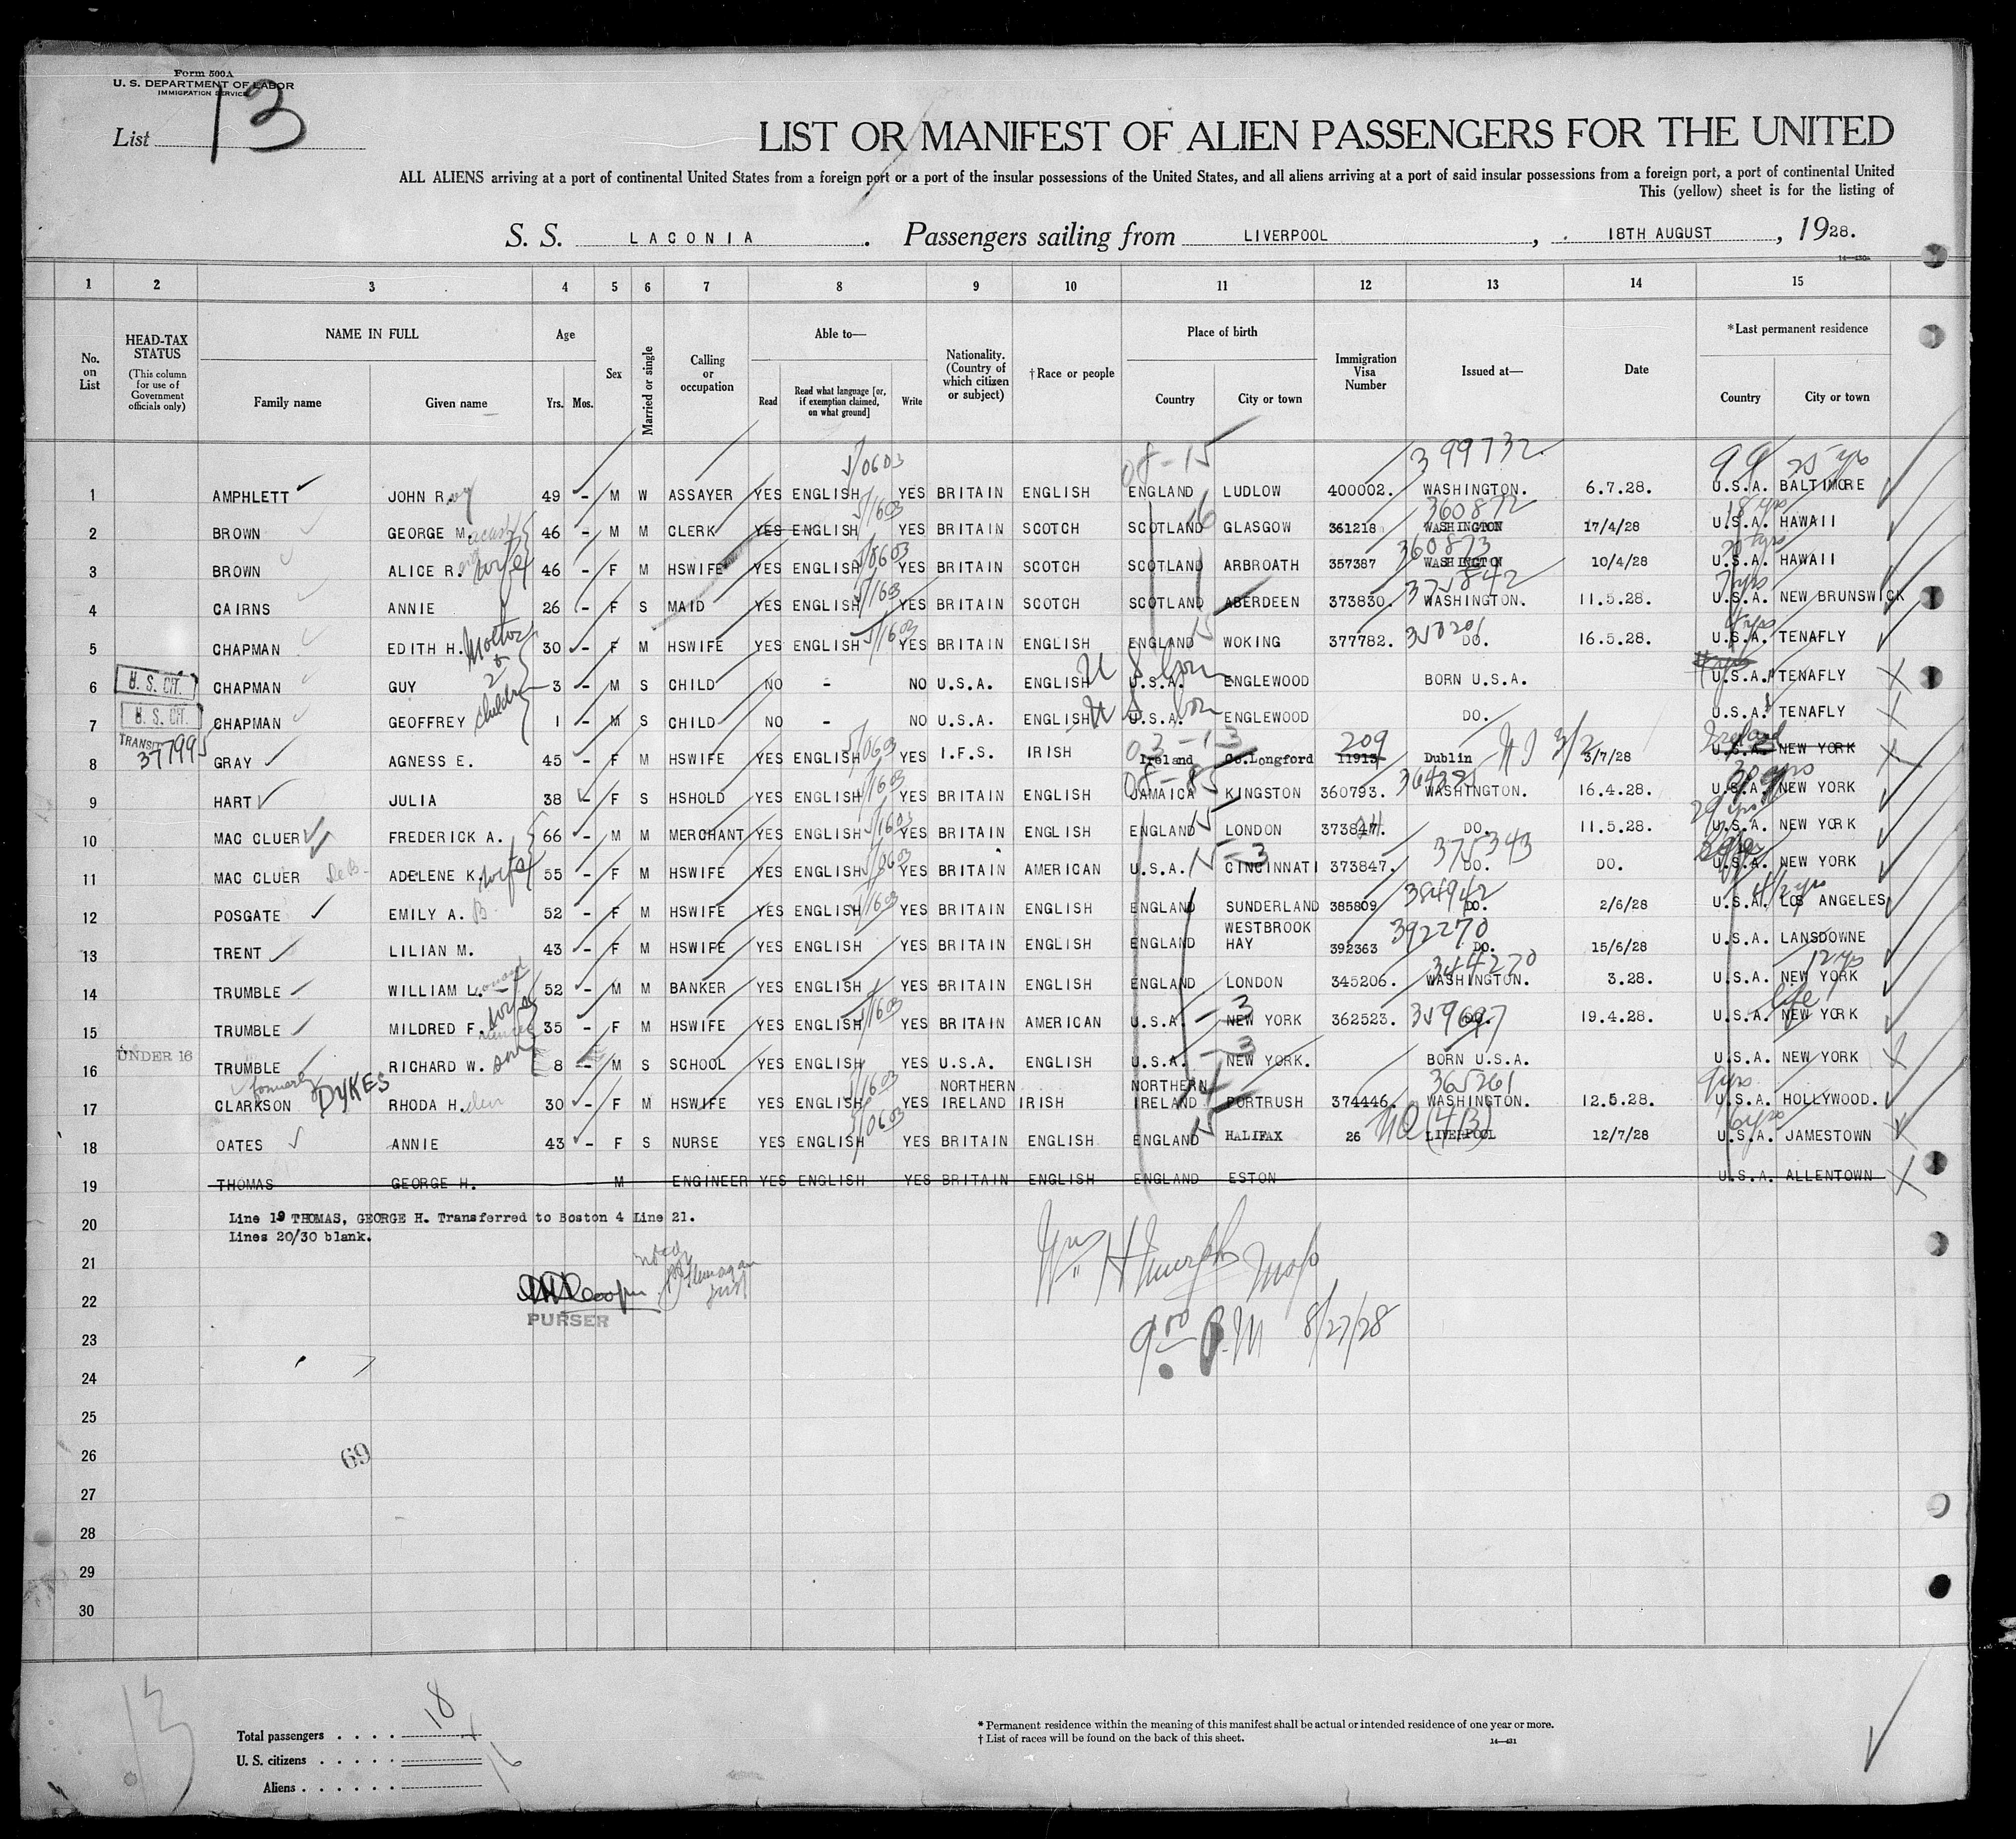 Form 500A
U. S. DEPARTMENT OF LABOR
IMMIGRATION SERVICE
List 13
LIST OR MANIFEST OF ALIEN PASSENGERS FOR THE UNITED
ALL ALIENS arriving at a port of continental United States from a foreign port or a port of the insular possessions of the United States, and all aliens arriving at a port of said insular possessions from a foreign port, a port of continental United
This (yellow) sheet is for the listing of
S. S. LACONIA. Passengers sailing from LIVERPOOL, 18TH AUGUST, 1928.
14-430
1 2 3 4 5 6 7 8 9 10 11 12 13 14 15
No. on List
HEAD-TAX STATUS (This column for use of Government officials only)
NAME IN FULL Family name Given name
Age Yrs. Mos.
Sex
Married or single
Calling or occupation
Able to— Read Read what language [or, if exemption claimed, on what ground] Write
Nationality. (Country of which citizen or subject)
†Race or people
Place of birth Country City or town
Immigration Visa Number
Issued at—
Date
*Last permanent residence Country City or town
5/0603 08-15 399732 99 25 yrs
1 AMPHLETT JOHN R. 49 - M W ASSAYER YES ENGLISH YES BRITAIN ENGLISH ENGLAND LUDLOW 400002. WASHINGTON. 6.7.28. U.S.A. BALTIMORE
5/1603 360872 18 yrs
2 BROWN GEORGE M. 46 - M M CLERK YES ENGLISH YES BRITAIN SCOTCH SCOTLAND GLASGOW 361218 WASHINGTON 17/4/28 U.S.A. HAWAII
5/0603 360873
3 BROWN ALICE R. wife 46 - F M HSWIFE YES ENGLISH YES BRITAIN SCOTCH SCOTLAND ARBROATH 357387 WASHINGTON 10/4/28 U.S.A. HAWAII
375842 7 yrs
4 CAIRNS ANNIE 26 - F S MAID YES ENGLISH YES BRITAIN SCOTCH SCOTLAND ABERDEEN 373830. WASHINGTON. 11.5.28. U.S.A. NEW BRUNSWICK
5/1603 15
5 CHAPMAN EDITH H. Mother & 2 children 30 - F M HSWIFE YES ENGLISH YES BRITAIN ENGLISH ENGLAND WOKING 377782. DO. 16.5.28. U.S.A. TENAFLY
U. S. CIT. U S born
6 CHAPMAN GUY 3 - M S CHILD NO - NO U.S.A. ENGLISH U.S.A. ENGLEWOOD BORN U.S.A. U.S.A. TENAFLY
U. S. CIT. U S born
7 CHAPMAN GEOFFREY 1 - M S CHILD NO - NO U.S.A. ENGLISH U.S.A. ENGLEWOOD DO. U.S.A. TENAFLY
TRANSIT 377995 5/0603 03-13 209 Ireland
8 GRAY AGNESS E. 45 - F M HSWIFE YES ENGLISH YES I.F.S. IRISH Ireland Co.Longford 11913 Dublin 3/7/28 U.S.A. NEW YORK
5/1603 08-85 30 yrs
9 HART JULIA 38 - F S HSHOLD YES ENGLISH YES BRITAIN ENGLISH JAMAICA KINGSTON 360793. WASHINGTON. 16.4.28. U.S.A. NEW YORK
5/1603 15 29 yrs
10 MAC CLUER FREDERICK A. 66 - M M MERCHANT YES ENGLISH YES BRITAIN ENGLISH ENGLAND LONDON 373847. DO. 11.5.28. U.S.A. NEW YORK
375343
11 MAC CLUER ADELENE K. wife 55 - F M HSWIFE YES ENGLISH YES BRITAIN AMERICAN U.S.A. CINCINNATI 373847. DO. DO. U.S.A. NEW YORK
5/1603 384942 4/2 yrs
12 POSGATE EMILY A. B 52 - F M HSWIFE YES ENGLISH YES BRITAIN ENGLISH ENGLAND SUNDERLAND 385809 DO. 2/6/28 U.S.A. LOS ANGELES
392270
13 TRENT LILIAN M. 43 - F M HSWIFE YES ENGLISH YES BRITAIN ENGLISH ENGLAND WESTBROOK HAY 392363 DO. 15/6/28 U.S.A. LANSDOWNE
344270 12 yrs
14 TRUMBLE WILLIAM L. 52 - M M BANKER YES ENGLISH YES BRITAIN ENGLISH ENGLAND LONDON 345206. WASHINGTON. 3.28. U.S.A. NEW YORK
5/1603 359697 life
15 TRUMBLE MILDRED F. wife 35 - F M HSWIFE YES ENGLISH YES BRITAIN AMERICAN U.S.A. NEW YORK 362523. DO. 19.4.28. U.S.A. NEW YORK
UNDER 16
16 TRUMBLE RICHARD W. son 8 - M S SCHOOL YES ENGLISH YES U.S.A. ENGLISH U.S.A. NEW YORK. BORN U.S.A. U.S.A. NEW YORK
formerly DYKES 5/1603 365261 9 yrs
17 CLARKSON RHODA H. 30 - F M HSWIFE YES ENGLISH YES NORTHERN IRELAND IRISH NORTHERN IRELAND PORTRUSH 374446. WASHINGTON. 12.5.28. U.S.A. HOLLYWOOD.
5/0603 15 NQ (4B) 6 yrs
18 OATES ANNIE 43 - F S NURSE YES ENGLISH YES BRITAIN ENGLISH ENGLAND HALIFAX 26 LIVERPOOL 12/7/28 U.S.A. JAMESTOWN
19 THOMAS GEORGE H. M ENGINEER YES ENGLISH YES BRITAIN ENGLISH ENGLAND ESTON U.S.A. ALLENTOWN
20 Line 19 THOMAS, GEORGE H. Transferred to Boston 4 Line 21.
Lines 20/30 blank.
21
22
PURSER
23
9 00 P.M 8/27/28
24
25
26
69
27
28
29
30
13
Total passengers . . . . 18
U. S. citizens . . . . .
Aliens . . . . . . 16
* Permanent residence within the meaning of this manifest shall be actual or intended residence of one year or more.
† List of races will be found on the back of this sheet.
14-431